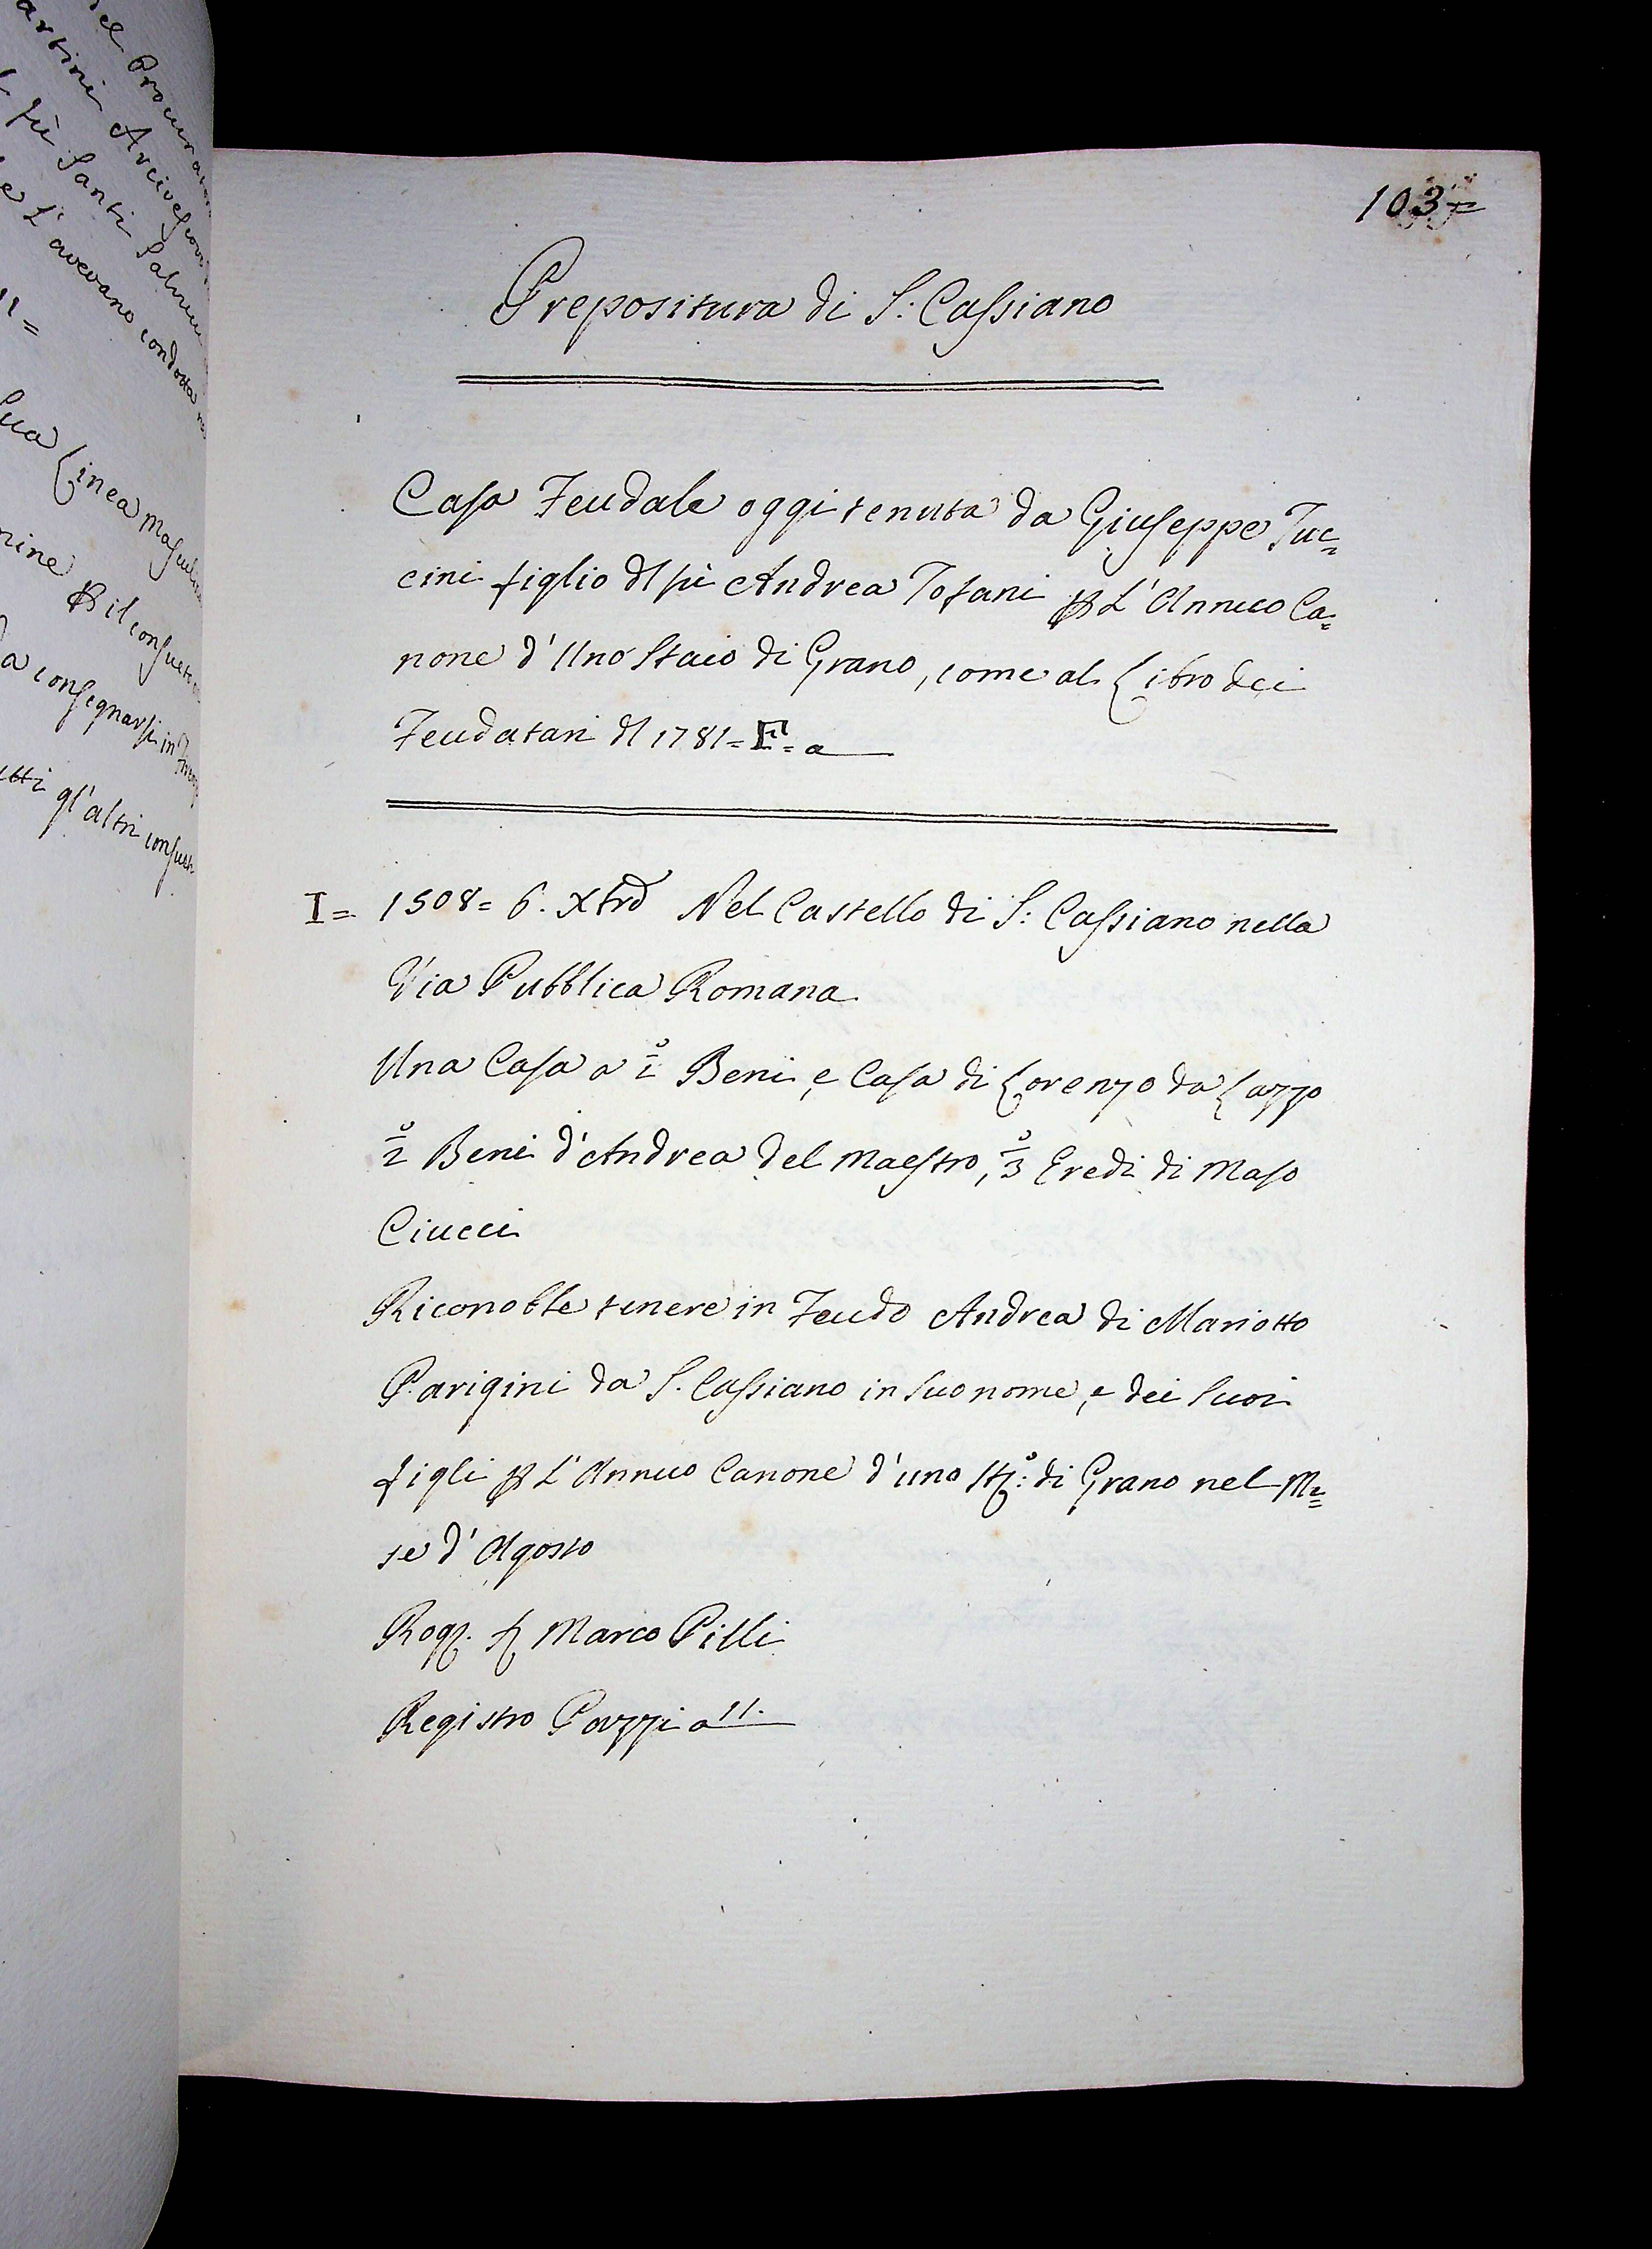 del Procurato
artini Arcivescov
fù Santi Salvu
e L'avevano condotta
11=
sua Linea Masculi
mine per il consueto
a consegnarsi in
utti gl'altri consueti
103=
Prepositura di S: Cassiano
Casa Feudale oggi tenuta da Giuseppe Tuc=
cini figlio dl fù Andrea Tofani per L'Annuo Ca=
none d'Uno Staio di Grano, come al Libro dei
Feudatari dl 1781= F= a
I= 1508= 6. Xbre Nel Castello di S: Cassiano nella
Via Pubblica Romana
Una Casa a i° Beni, e Casa di Lorenzo da Lazzo
2° Beni d'Andrea del Maestro, 3° Eredi di Maso
Ciucci
Riconobbe tenere in Feudo Andrea di Mariotto
Parigini da S. Cassiano in suo nome, e dei suoi
figli per L'Annuo Canone d'uno St°: di Grano nel Me=
se d'Agosto
Rog. Marco Pilli
Registro Pazzi a 11.